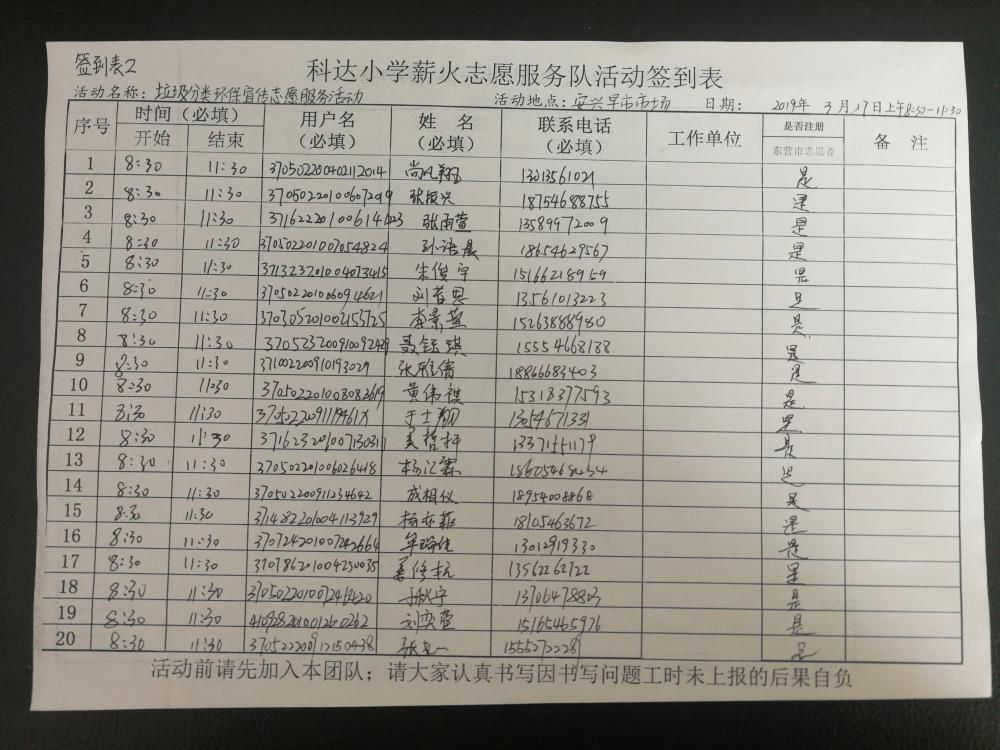 签到表2
科达小学薪火志愿服务队活动签到表
活动名称：垃圾分类环保宣传志愿服务活动 活动地点：安兴早市市场 日期：2019年3月17日上午8:30-11:30
序号 时间（必填） 用户名（必填） 姓 名（必填） 联系电话（必填） 工作单位 是否注册东营市志愿者 备 注
开始 结束
1 8:30 11:30 370502200402112014 尚凡翔 13013561021 是
2 8:30 11:30 370502201006072019 张振兴 18754688755 是
3 8:30 11:30 371622201006141023 张雨萱 13589972009 是
4 8:30 11:30 370502201007054824 孙语晨 18654629567 是
5 8:30 11:30 371323201004073415 朱俊宇 15166218959 是
6 8:30 11:30 370502201006094621 13561013223 是
7 8:30 11:30 370305201002153725 李景萱 15263888980 是
8 8:30 11:30 370523200910092429 聂钰琪 15554668188 是
9 8:30 11:30 371002200910193029 18866683403 是
10 8:30 11:30 370502201008083619 黄伟祺 15318377593 是
11 8:30 11:30 于士翔 是
12 8:30 11:30 371623201007130311 13371551179 是
13 8:30 11:30 370502201006026418 是
14 8:30 11:30 370502200911234642 成相仪 18954008868 是
15 8:30 11:30 371482201004113929 18105463672 是
16 8:30 11:30 370724201007242664 13012919330 是
17 8:30 11:30 370786201004250035 姜修杭 13562262722 是
18 8:30 11:30 于秋宇 13706478803 是
19 8:30 11:30 刘奕萱 15165465976 是
20 8:30 11:30 370522200912150438 15552722281 是
活动前请先加入本团队；请大家认真书写因书写问题工时未上报的后果自负